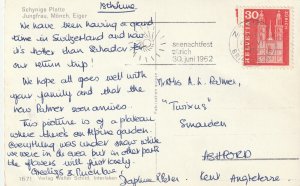 Schynige Platte
Jungfrau, Mönch, Eiger
We have been having a grand
time in Switzerland and now
it's hotter than Salvador for
our return trip
We hope all goes well with
your family and that the
new Palmer soon arrives.
This picture is of a plateau
where there's an Alpine garden.
Everything was under snow while
we were in its area but in other parts
the flowers were just lovely.
seenachtfest
zürich
30. juni 1962
HELVETIA
30
Mrs A. L. Palmer,
Smarden
ASHFORD
Kent Angleterre
1671 Verlag Walter Schild, Interlaken